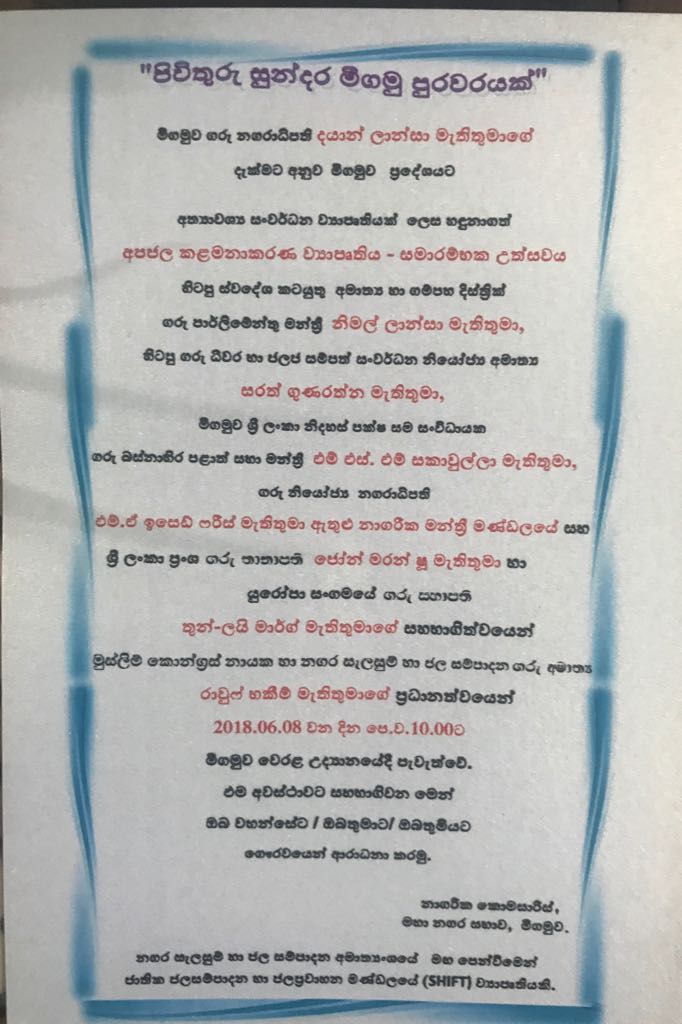 "පිවිතුරු සුන්දර මීගමු පුරවරයක්"
මීගමුව ගරු නගරාධිපති දයාන් ලාන්සා මැතිතුමාගේ
දැක්මට අනුව මීගමුව ප්‍රදේශයට
අත්‍යාවශ්‍ය සංවර්ධන ව්‍යාපෘතියක් ලෙස හඳුනාගත්
අපජල කළමනාකරණ ව්‍යාපෘතිය - සමාරම්භක උත්සවය
හිටපු ස්වදේශ කටයුතු අමාත්‍ය හා ගම්පහ දිස්ත්‍රික්
ගරු පාර්ලිමේන්තු මන්ත්‍රී නිමල් ලාන්සා මැතිතුමා,
හිටපු ගරු ධීවර හා ජලජ සම්පත් සංවර්ධන නියෝජ්‍ය අමාත්‍ය
සරත් ගුණරත්න මැතිතුමා,
මීගමුව ශ්‍රී ලංකා නිදහස් පක්ෂ සම සංවිධායක
ගරු බස්නාහිර පළාත් සභා මන්ත්‍රී එම් එස්. එම් සකාවුල්ලා මැතිතුමා,
ගරු නියෝජ්‍ය නගරාධිපති
එම්.ඒ ඉසෙඩ් ෆරීස් මැතිතුමා ඇතුළු නාගරික මන්ත්‍රී මණ්ඩලයේ සහ
ශ්‍රී ලංකා ප්‍රංශ ගරු තානාපති ජෝන් මරන් ෂූ මැතිතුමා හා
යුරෝපා සංගමයේ ගරු සභාපති
තුන්-ලයි මාර්ග් මැතිතුමාගේ සහභාගිත්වයෙන්
මුස්ලිම් කොන්ග්‍රස් නායක හා නගර සැලසුම් හා ජල සම්පාදන ගරු අමාත්‍ය
රාවුෆ් හකීම් මැතිතුමාගේ ප්‍රධානත්වයෙන්
2018.06.08 වන දින පෙ.ව.10.00ට
මීගමුව වෙරළ උද්‍යානයේදී පැවැත්වේ.
එම අවස්ථාවට සහභාගිවන මෙන්
ඔබ වහන්සේට / ඔබතුමාට/ ඔබතුමියට
ගෞරවයෙන් ආරාධනා කරමු.
නාගරික කොමසාරිස්,
මහා නගර සභාව, මීගමුව.
නගර සැලසුම් හා ජල සම්පාදන අමාත්‍යංශයේ මහ පෙන්වීමෙන්
ජාතික ජලසම්පාදන හා ජලප්‍රවාහන මණ්ඩලයේ (SHIFT) ව්‍යාපෘතියකි.